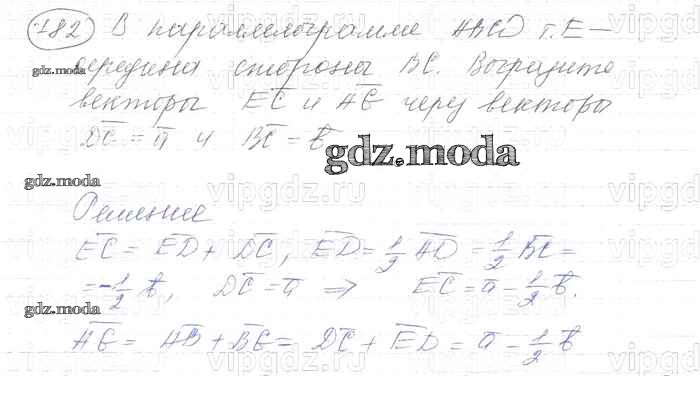 782) В параллелограмме ABCD т. E —
середина стороны BC. Выразите
векторы EC и AE через векторы
DC = a и BC = b
gdz.moda
gdz.moda
gdz.moda
gdz.moda
Решение
EC = ED + DC, ED = 1/2 AD = 1/2 BC =
= -1/2 b, DC = a => EC = a - 1/2 b.
AE = AB + BE = DC + ED = a - 1/2 b
vipgdz.ru